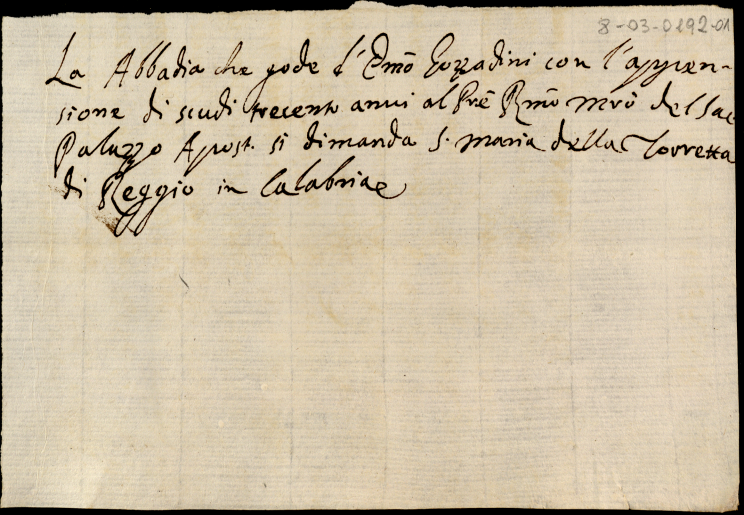 8-03-0192-01
La Abbadia che gode l'Em̄o Gozzadini con l'appen-
sione di scudi trecento annui al Prē Rm̄o Mrō del Sac.
Palazzo Apost. si dimanda S. Maria della Torretta
di Reggio in Calabria